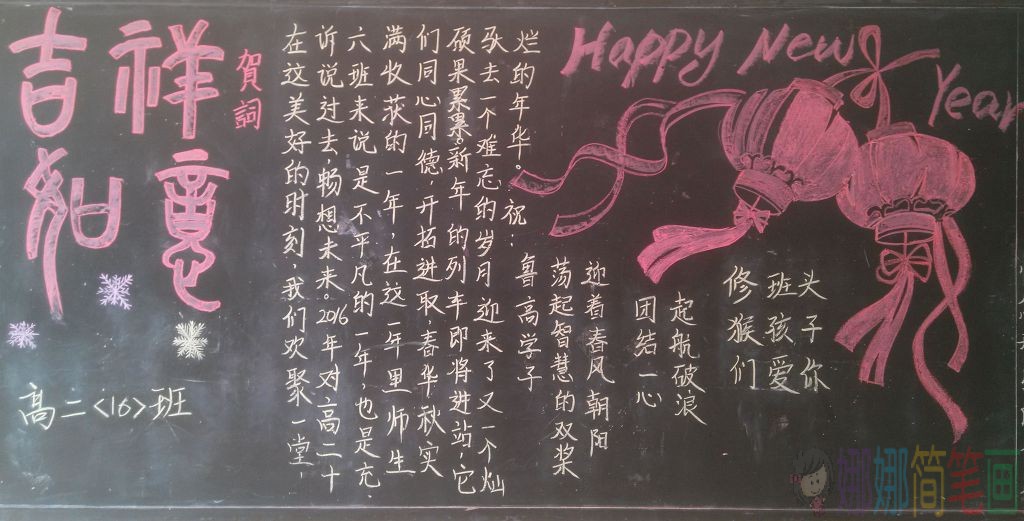 吉祥
如意
贺詞
高二<16>班
在这美好的时刻,我们欢聚一堂,
诉说过去,畅想未来。2016年对高二十
六班来说是不平凡的一年,也是充
满收获的一年,在这一年里师生
们同心同德,开拓进取,春华秋实
硕果累累。新年的列车即将进站,它
驮去一个难忘的岁月 迎来了又一个灿
烂的年华。祝:
鲁高学子
荡起智慧的双桨
迎着春风朝阳
团结一心
起航破浪
修班头
猴孩子
们爱你
Happy New Year
娜娜简笔画